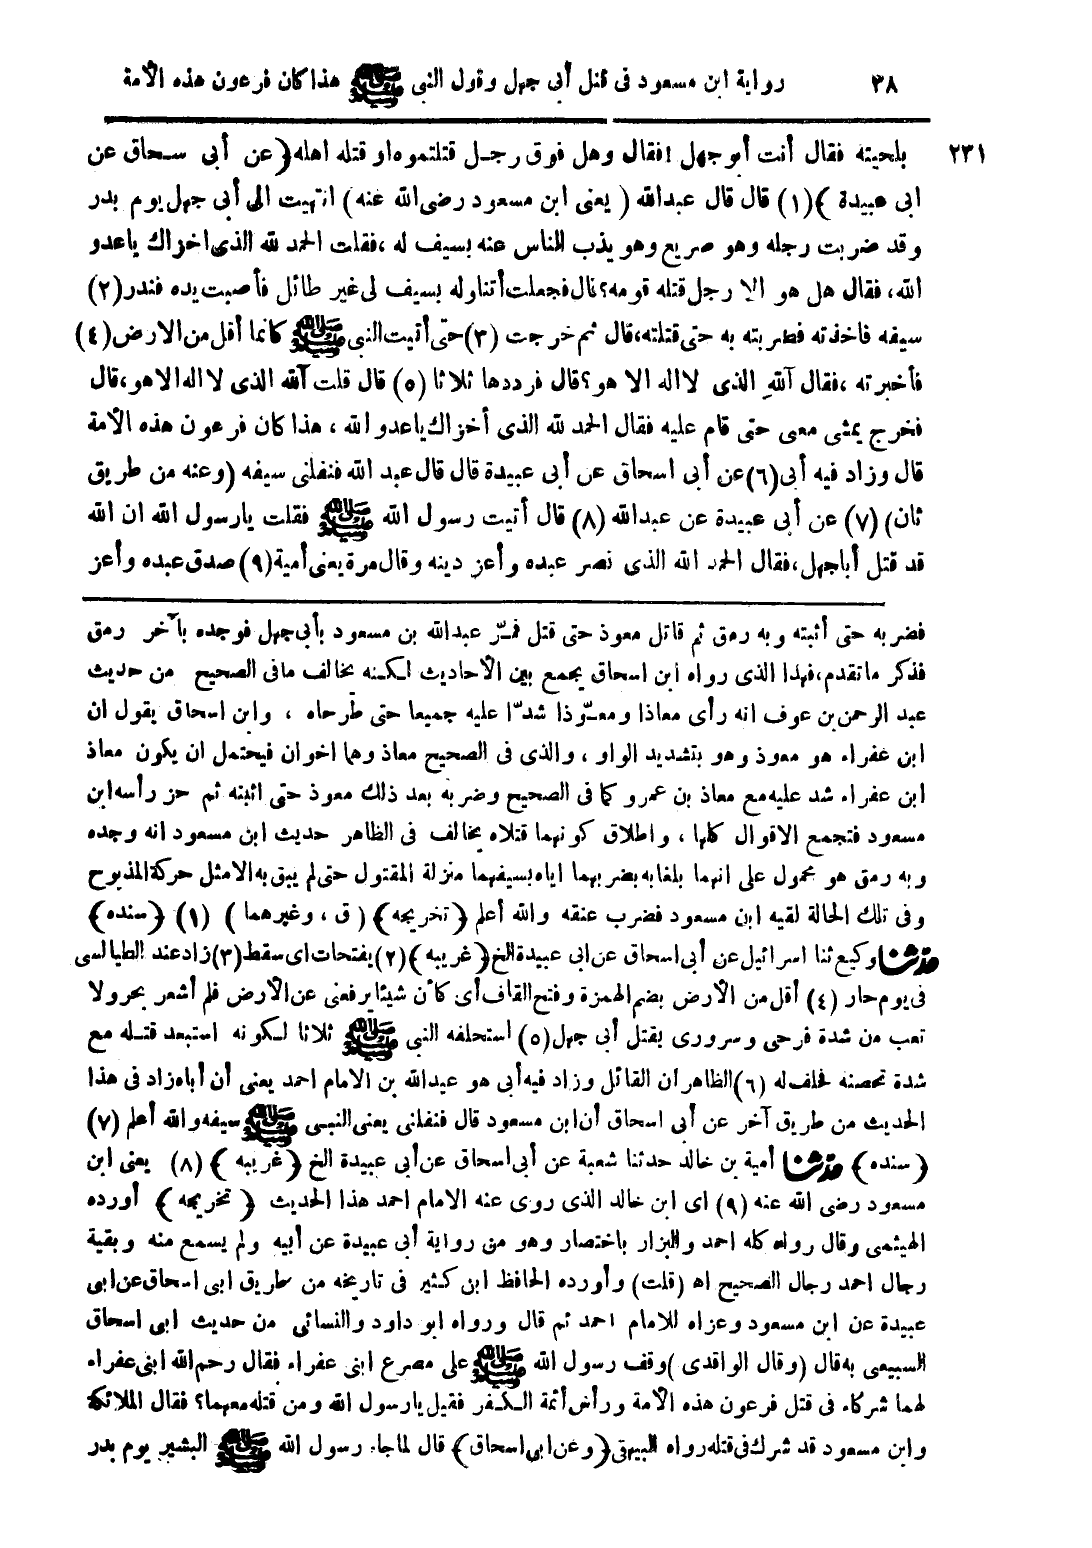 ٣٨ رواية ابن مسعود فى قتل أبى جهل وقول النبى ﷺ هذا كان فرعون هذه الأمة
٢٣١ بلحيته فقال أنت أبو جهل ؟ فقال وهل فوق رجل قتلتموه او قتله اهله ﴿ عن أبى سحاق عن
ابى عبيدة ﴾ (١) قال قال عبدالله ( يعنى ابن مسعود رضى الله عنه ) انتهيت الى أبى جهل يوم بدر
وقد ضربت رجله وهو صريع وهو يذب الناس عنه بسيف له ، فقلت الحمد لله الذى اخزاك ياعدو
الله ، فقال هل هو الا رجل قتله قومه؟ قال فجعلت أتناوله بسيف لى غير طائل فأصبت يده فندر (٢)
سيفه فاخذته فضربته به حتى قتلته، قال ثم خرجت (٣) حتى أتيت النبى ﷺ كانما أقل من الارض (٤)
فأخبرته ، فقال آلله الذى لا اله الا هو؟ قال فرددها ثلاثا (٥) قال قلت آلله الذى لا اله الا هو، قال
فخرج يمشى معى حتى قام عليه فقال الحمد لله الذى أخزاك ياعدو الله ، هذا كان فرعون هذه الأمة
قال وزاد فيه أبى (٦) عن أبى اسحاق عن أبى عبيدة قال قال عبد الله فنفلنى سيفه (وعنه من طريق
ثان) (٧) عن أبى عبيدة عن عبدالله (٨) قال أتيت رسول الله ﷺ فقلت يارسول الله ان الله
قد قتل أباجهل، فقال الحمد الله الذى نصر عبده وأعز دينه وقال مرة يعنى أمية (٩) صدق عبده وأعز
فضربه حتى أثبته وبه رمق ثم قاتل معوذ حتى قتل فمرّ عبدالله بن مسعود بأبى جهل فوجده بآخر رمق
فذكر ما تقدم، فهذا الذى رواه ابن اسحاق يجمع بين الأحاديث لكنه يخالف مافى الصحيح من حديث
عبد الرحمن بن عوف انه رأى معاذا ومعوّذا شدّا عليه جميعا حتى طرحاه ، وابن اسحاق يقول ان
ابن عفراء هو معوذ وهو بتشديد الواو ، والذى فى الصحيح معاذ وهما اخوان فيحتمل ان يكون معاذ
ابن عفراء شد عليه مع معاذ بن عمرو كما فى الصحيح وضربه بعد ذلك معوذ حتى اثبته ثم حز رأسه ابن
مسعود فتجمع الاقوال كلها ، واطلاق كونهما قتلاه يخالف فى الظاهر حديث ابن مسعود انه وجده
وبه رمق هو محمول على انهما بلغا به بضربهما اياه بسيفهما منزلة المقتول حتى لم يبق به الا مثل حركة المذبوح
وفى تلك الحالة لقيه ابن مسعود فضرب عنقه والله أعلم ﴿ تخريجه ﴾ ( ق ، وغيرهما ) (١) ﴿ سنده ﴾
حدثنا وكيع ثنا اسرائيل عن أبى اسحاق عن ابى عبيدة الخ ﴿ غريبه ﴾ (٢) بفتحات اى سقط (٣) زاد عند الطيالسى
فى يوم حار (٤) أقل من الأرض بضم الهمزة وفتح القاف أى كأن شيئا يرفعنى عن الأرض فلم أشعر بحر ولا
تعب من شدة فرحى وسرورى بقتل أبى جهل (٥) استحلفه النبى ﷺ ثلاثا لكونه استبعد قتله مع
شدة تحصنه فحلف له (٦) الظاهر ان القائل وزاد فيه أبى هو عبدالله بن الامام احمد يعنى أن أباه زاد فى هذا
الحديث من طريق آخر عن أبى اسحاق أن ابن مسعود قال فنفلنى يعنى النبى ﷺ سيفه والله أعلم (٧)
﴿ سنده ﴾ حدثنا أمية بن خالد حدثنا شعبة عن أبى اسحاق عن أبى عبيدة الخ ﴿ غريبه ﴾ (٨) يعنى ابن
مسعود رضى الله عنه (٩) اى ابن خالد الذى روى عنه الامام احمد هذا الحديث ﴿ تخريجه ﴾ أورده
الهيثمى وقال رواه كله احمد والبزار باختصار وهو من رواية أبى عبيدة عن أبيه ولم يسمع منه وبقية
رجال احمد رجال الصحيح اه (قلت) وأورده الحافظ ابن كثير فى تاريخه من طريق ابى اسحاق عن ابى
عبيدة عن ابن مسعود وعزاه للامام احمد ثم قال ورواه ابو داود والنسائى من حديث ابى اسحاق
السبيعى به قال (وقال الواقدى) وقف رسول الله ﷺ على مصرع ابنى عفراء فقال رحم الله ابنى عفراء
لهما شركاء فى قتل فرعون هذه الأمة ورأس أئمة الكفر فقيل يارسول الله ومن قتله معهما؟ فقال الملائكة
وابن مسعود قد شرك فى قتله رواه البيهقى ﴿ وعن ابى اسحاق ﴾ قال لما جاء رسول الله ﷺ البشير يوم بدر